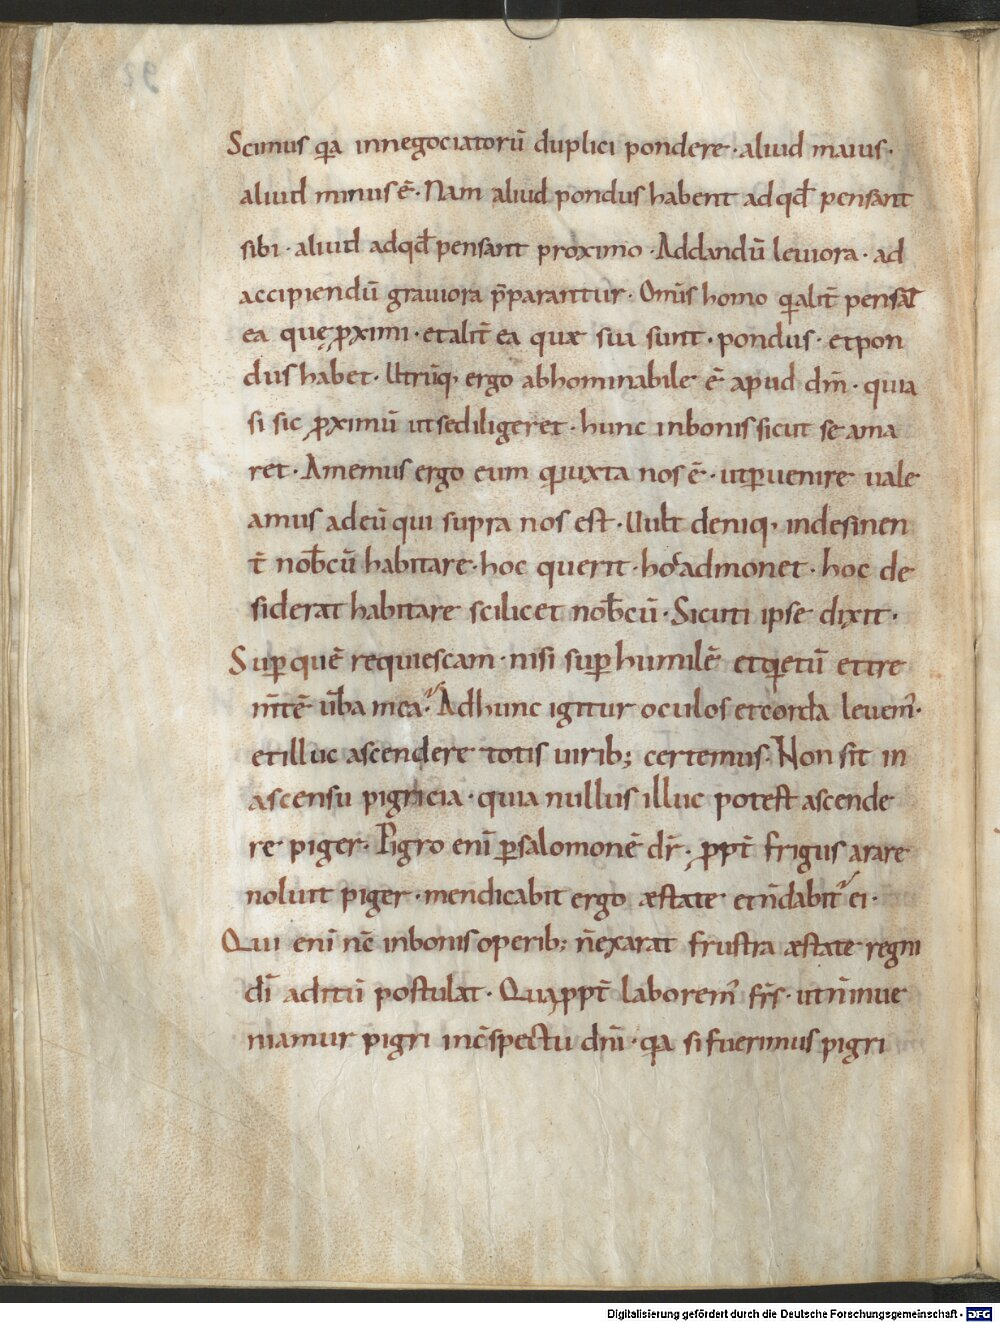 Scimus qa innegociatorū duplici pondere · aliud maius ·
aliud minus ē · Nam aliud pondus habent adqđ pensant
sibi · aliud adqđ pensant proximo · Addandū leuiora · ad
accipiendū grauiora p̄parantur · Omīs homo qalit̄ pensat
ea quę ꝓximi · etalit̄ ea quæ sua sunt · pondus · etpon
dus habet · Utrūq, ergo abhominabile ē apud dm̄ · quia
si sic ꝓximū utsediligeret · hunc inbonis sicut se ama
ret · Amemus ergo eum qiuxta nos ē · utꝑuenire uale
amus adeū qui supra nos est · Uult deniq, indesinen
t̄ nob̄cū habitare · hoc querit · hoc admonet · hoc de
siderat habitare scilicet nob̄cū · Sicuti ipse dixit ·
Suꝑ quē requiescam · nisi suꝑ humilē etqetū ettre
m̄tē ūba mea · Adhunc igitur oculos etcorda leuem̄ ·
etilluc ascendere totis uirib; certemus · Non sit in
ascensu pigricia · quia nullus illuc potest ascende
re piger · Pigro enī ꝑsalomonē dr̄ · ꝓpt̄ frigus arare
noluit piger · mendicabit ergo æstate etn̄dabit̄ ei ·
Qui enī nc̄ inbonis operib; n̄exarat frustra æstate regni
dī aditū postulat · Quaꝓpt̄ laborem̄ frs̄ · utn̄inue
niamur pigri inc̄spectu dnī · qa si fuerimus pigri
Digitalisierung gefördert durch die Deutsche Forschungsgemeinschaft - DFG